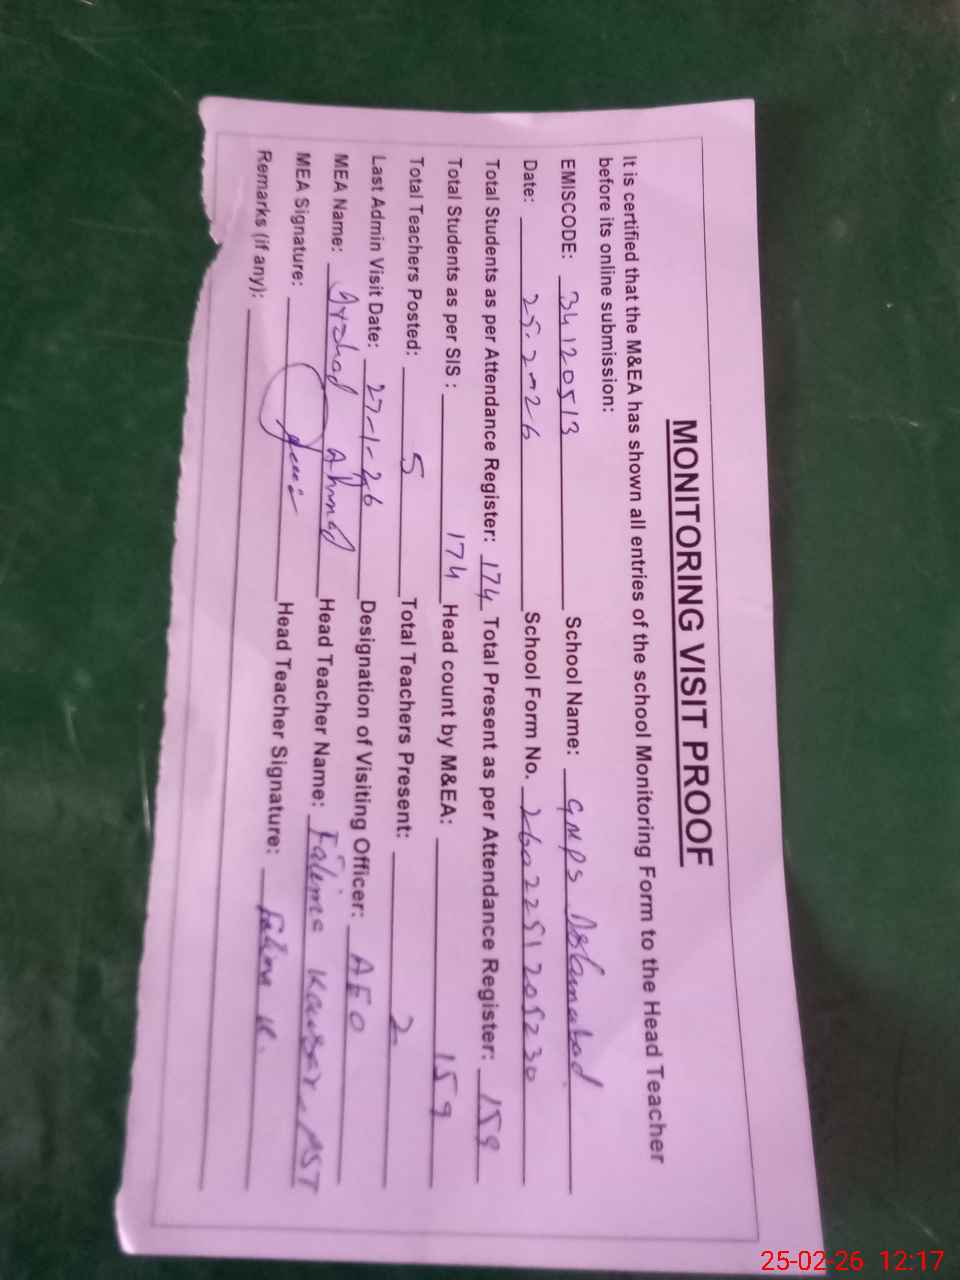 MONITORING VISIT PROOF
It is certified that the M&EA has shown all entries of the school Monitoring Form to the Head Teacher
before its online submission:
EMISCODE: 34120513 School Name: GMPS Islamabad
Date: 25-2-26 School Form No. 26022512052 30
Total Students as per Attendance Register: 174 Total Present as per Attendance Register: 159
Total Students as per SIS : 174 Head count by M&EA: 159
Total Teachers Posted: 5 Total Teachers Present: 2
Last Admin Visit Date: 27-1-26 Designation of Visiting Officer: AEO
MEA Name: Ahmed Head Teacher Name: Fatima Kausar
MEA Signature: Head Teacher Signature: Fatima K.
Remarks (if any):
25-02-26 12:17